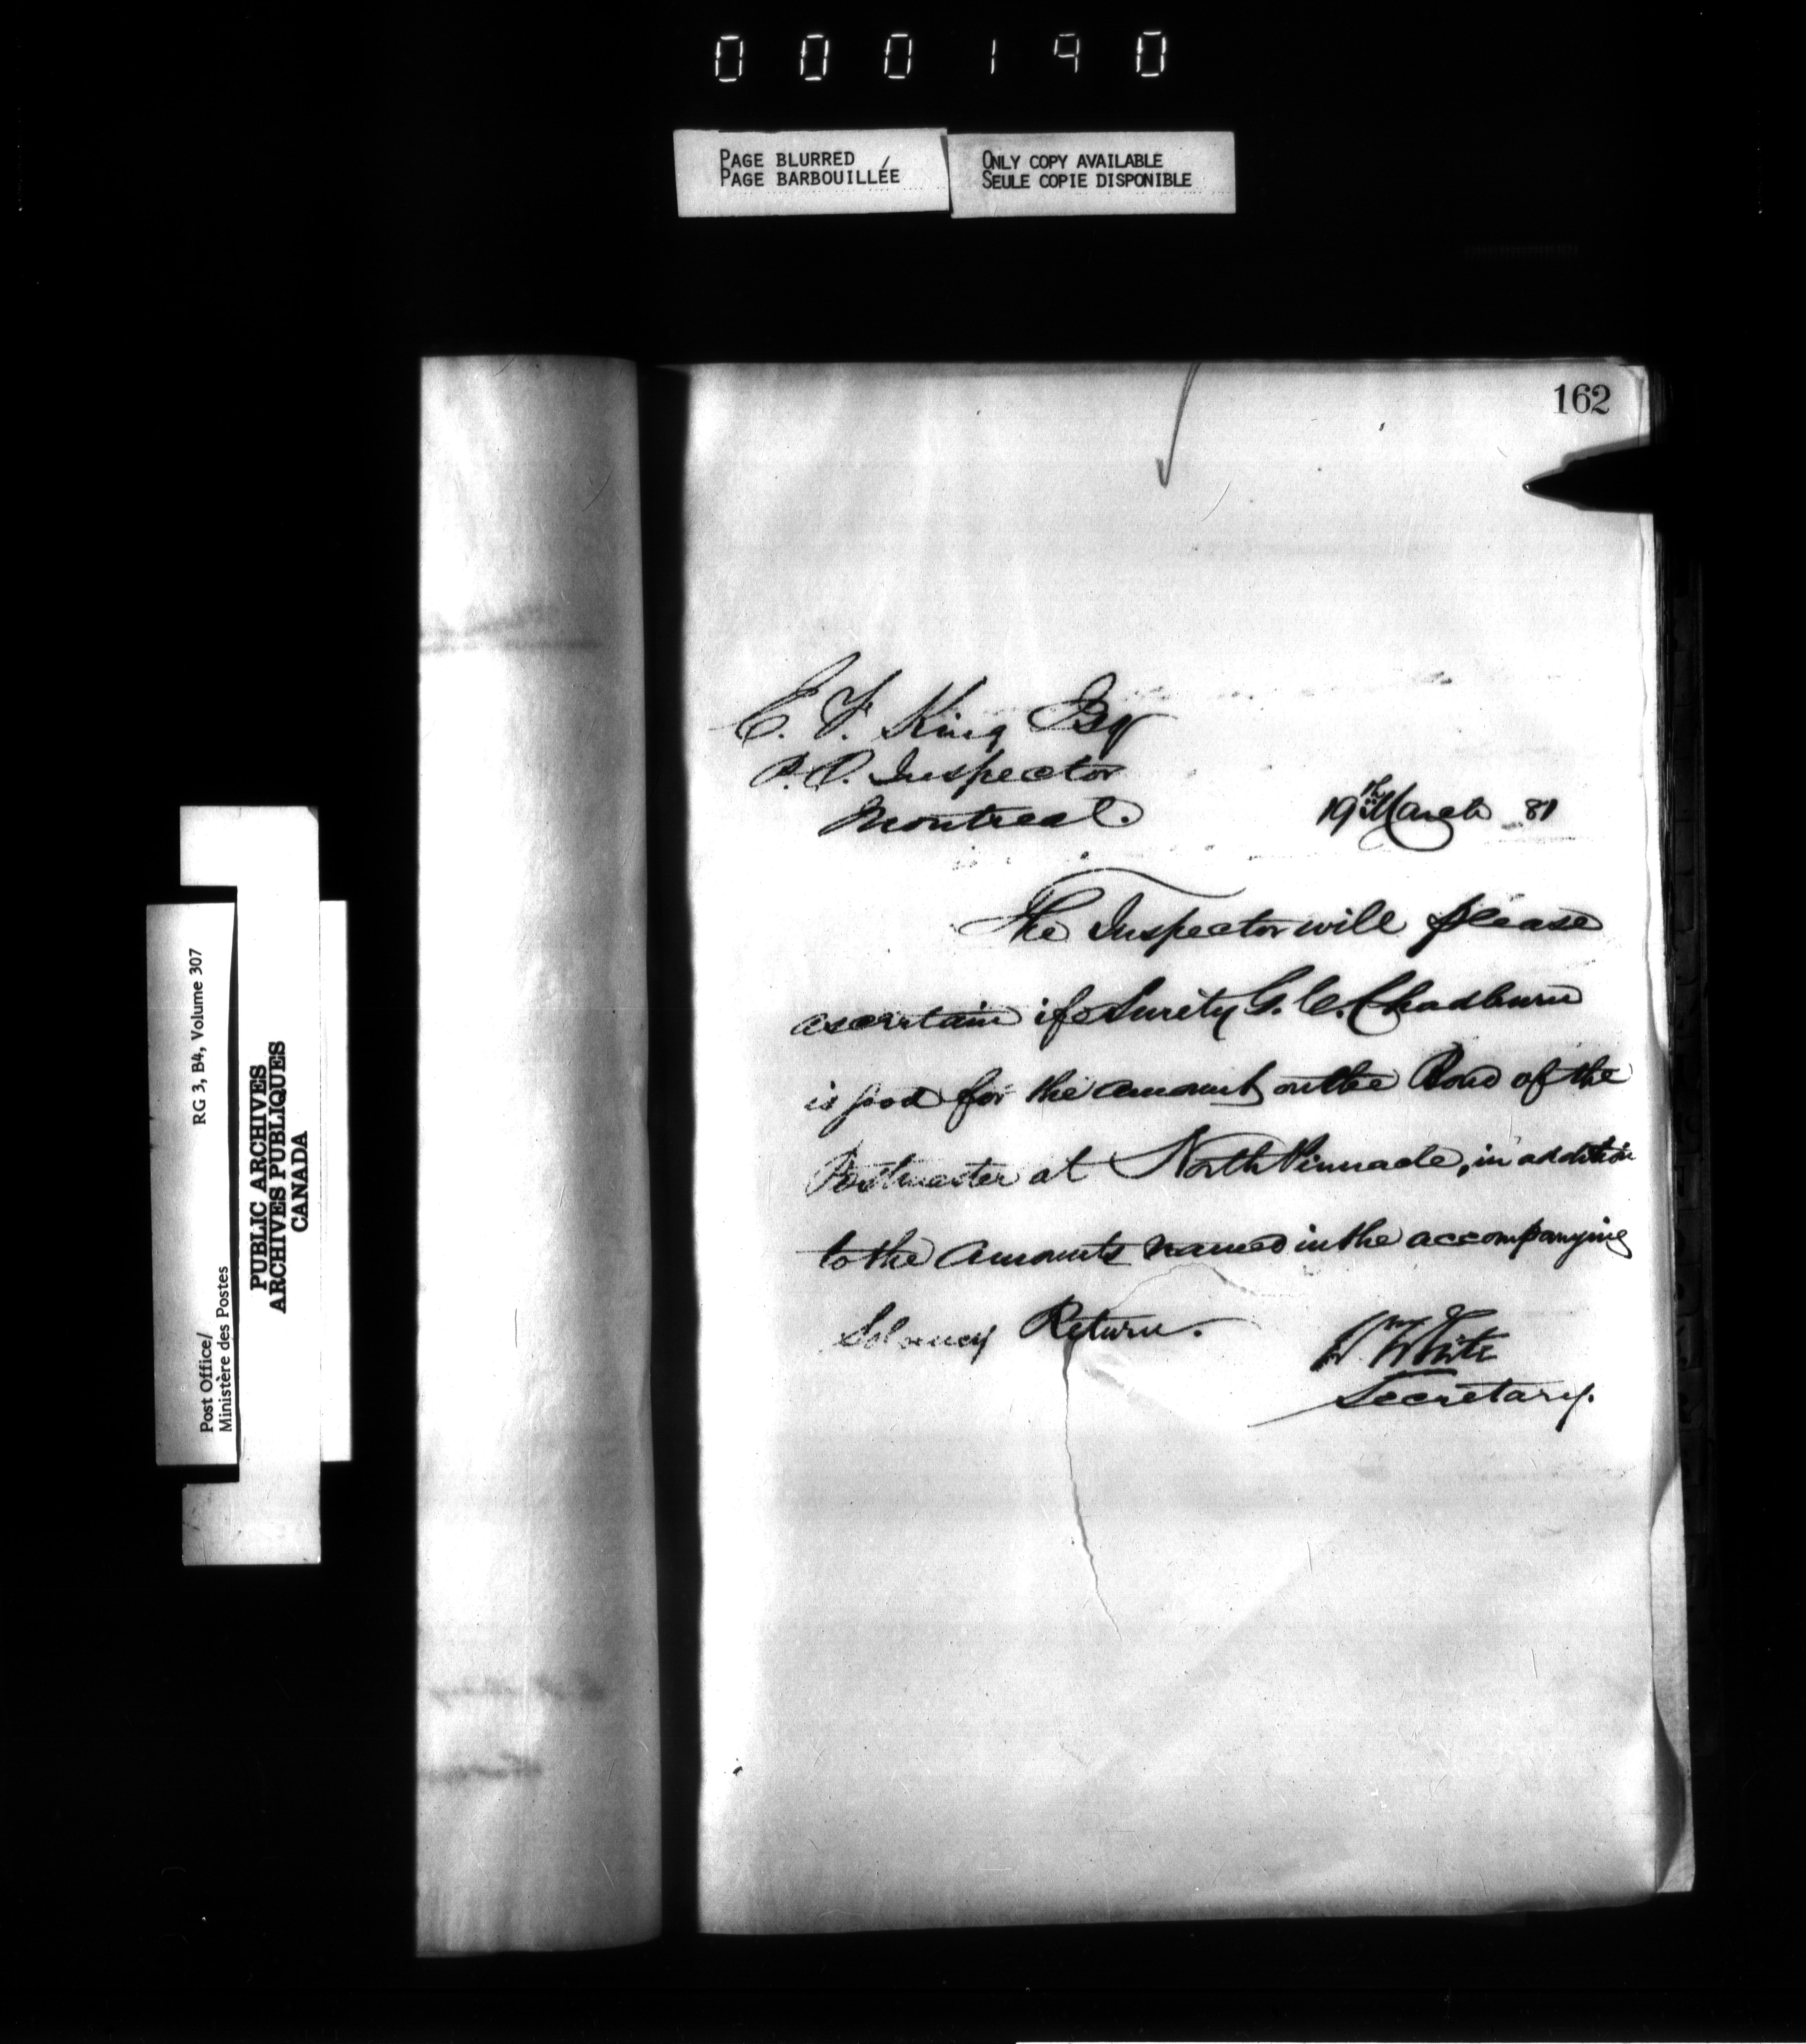 000190
PAGE BLURRED
PAGE BARBOUILLÉE
ONLY COPY AVAILABLE
SEULE COPIE DISPONIBLE
162
E. F. King Esq
P.O. Inspector
Montreal.
19th March 81
The Inspector will please
ascertain if Surety G. C. Chadburn
is good for the amount on the Bond of the
Postmaster at North Pinnacle, in addition
to the amounts named in the accompanying
Solvency Return.
Wm White
Secretary.
Post Office/
Ministère des Postes
RG 3, B4, Volume 307
PUBLIC ARCHIVES
ARCHIVES PUBLIQUES
CANADA